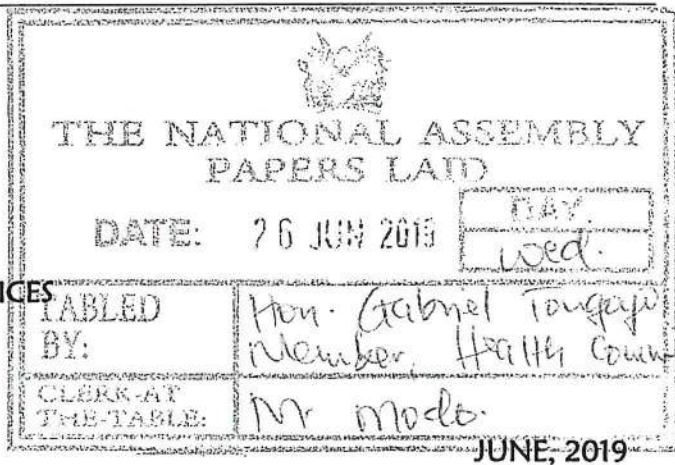 THE NATIONAL ASSEMBLY
PAPERS LAID
DATE: 26 JUN 2019
DAY.
Wed.
ICES
TABLED
BY:
Hon. Gabriel Tongoyo
Member, Health Comm
CLERK-AT
THE-TABLE:
Mr Modo.
JUNE, 2019